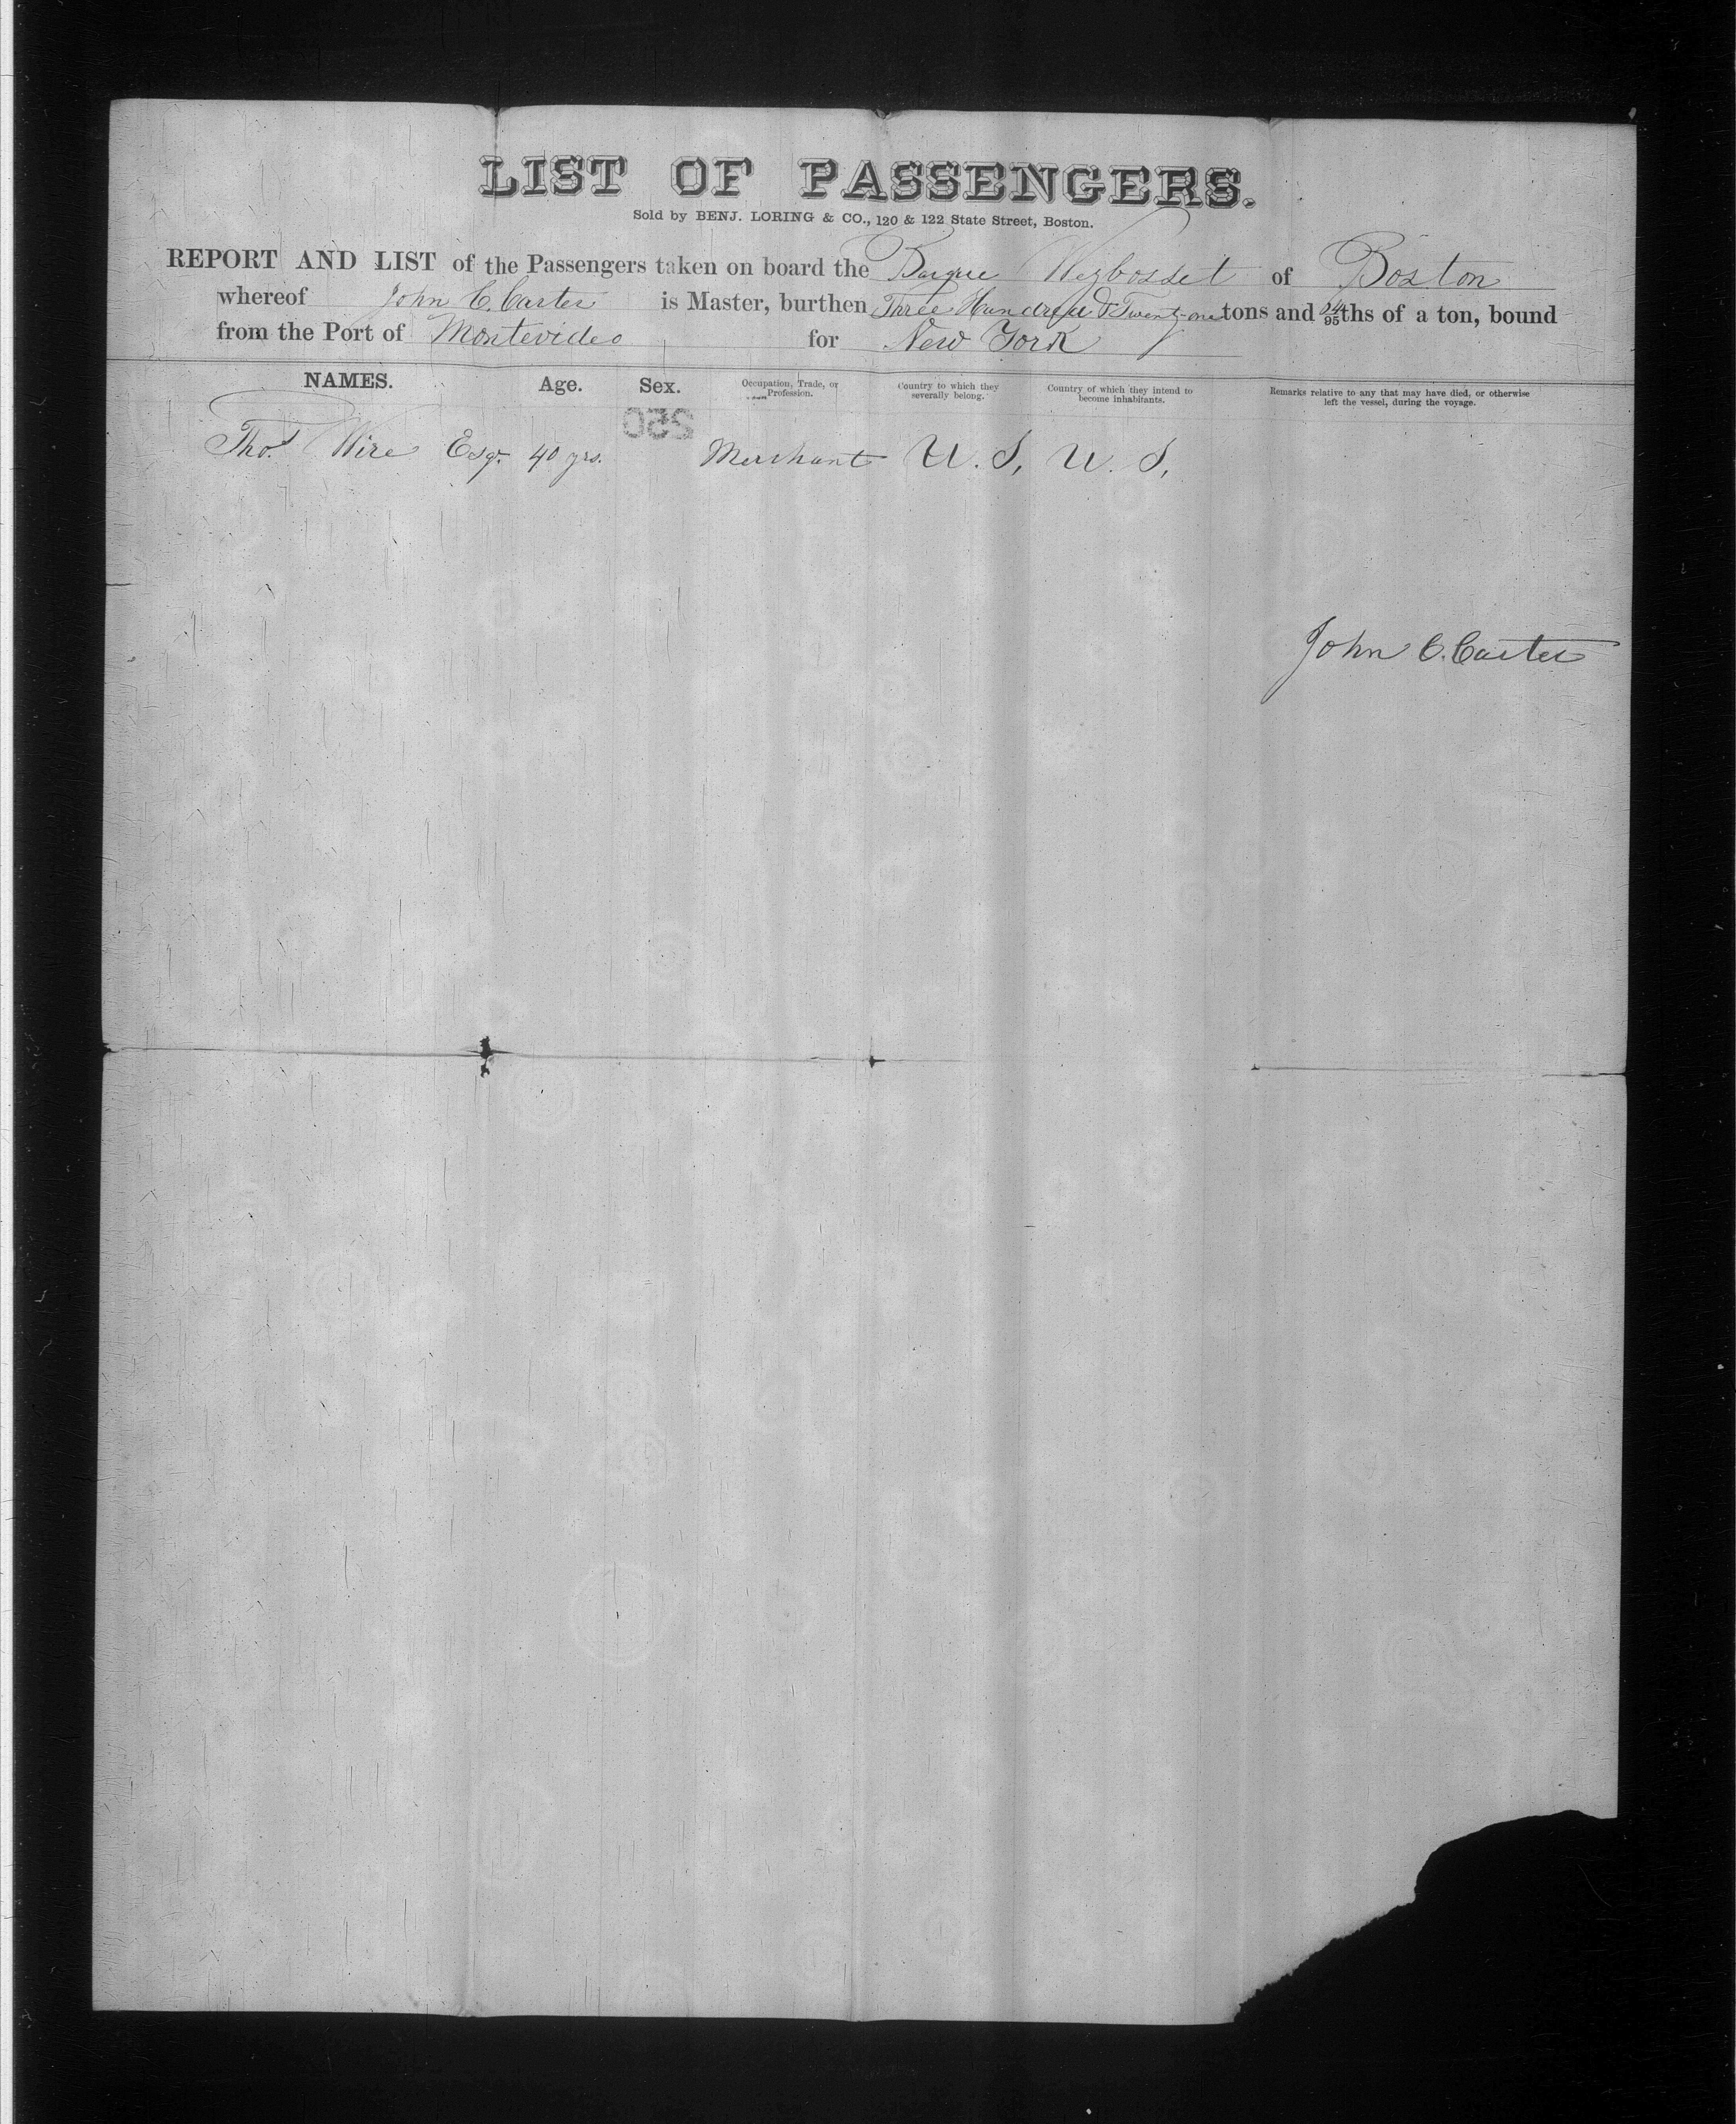 LIST OF PASSENGERS.
Sold by BENJ. LORING & CO., 120 & 122 State Street, Boston.
REPORT AND LIST of the Passengers taken on board the Barque Weybosset of Boston
whereof John C. Carter is Master, burthen Three Hundred & Twenty-one tons and 94/95ths of a ton, bound
from the Port of Montevideo for New York
NAMES. Age. Sex. Occupation, Trade, or Profession. Country to which they severally belong. Country of which they intend to become inhabitants. Remarks relative to any that may have died, or otherwise left the vessel, during the voyage.
520
Thos. Wire Esqr. 40 yrs. Merchant U. S. U. S.
John C. Carter